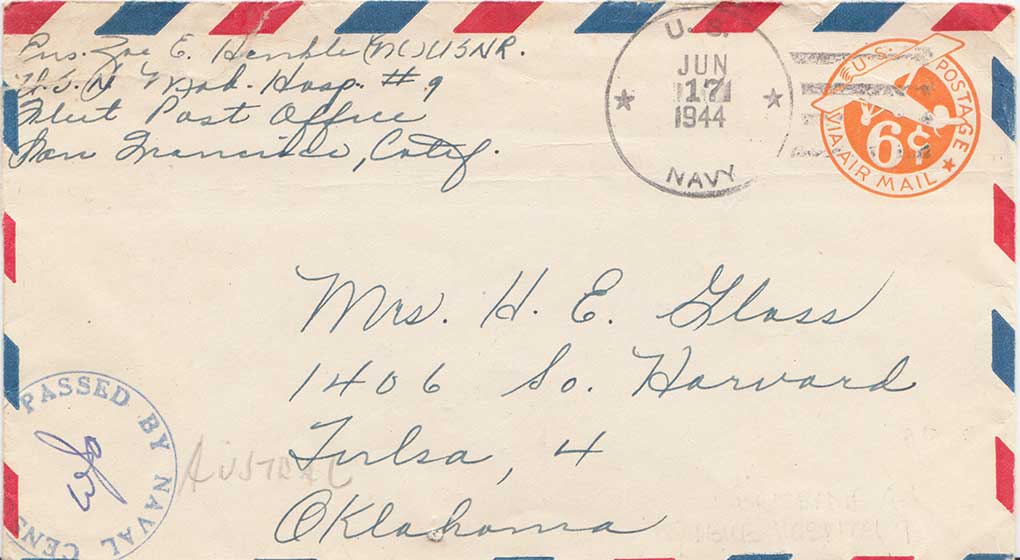 Ens. Zoe E. Hamble (NC) USNR.
U.S.N. Mob. Hosp. #9
Fleet Post Office
San Francisco, Calif.
U. S.
JUN
17
1944
NAVY
U.S. POSTAGE
6¢
VIA AIR MAIL
Mrs. H. E. Glass
1406 So. Harvard
Tulsa, 4
Oklahoma
PASSED BY NAVAL CENS
AUSTRAL